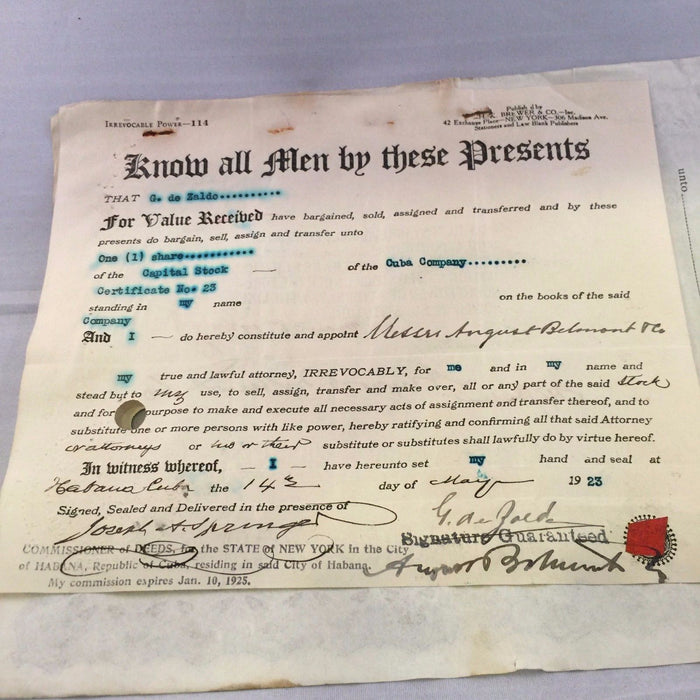 IRREVOCABLE POWER—114
Publish d by
BREWER & CO.—Inc.
42 Exchange Place—NEW YORK—306 Madison Ave.
Stationers and Law Blank Publishers
Know all Men by these Presents
THAT G. de Zaldo..........
For Value Received have bargained, sold, assigned and transferred and by these
presents do bargain, sell, assign and transfer unto
One (1) share...........
of the Capital Stock — of the Cuba Company.........
Certificate No. 23
standing in my name on the books of the said
Company
And I — do hereby constitute and appoint Messrs August Belmont & Co
my true and lawful attorney, IRREVOCABLY, for me and in my name and
stead but to my use, to sell, assign, transfer and make over, all or any part of the said stock
and for purpose to make and execute all necessary acts of assignment and transfer thereof, and to
substitute one or more persons with like power, hereby ratifying and confirming all that said Attorney
or attorneys or his or their substitute or substitutes shall lawfully do by virtue hereof.
In witness whereof, — I — have hereunto set my hand and seal at
Habana Cuba the 14th day of May 1923
Signed, Sealed and Delivered in the presence of
G. de Zaldo
Joseph A. Springer
Signature Guaranteed
COMMISSIONER of DEEDS, for the STATE of NEW YORK in the City
of HABANA, Republic of Cuba, residing in said City of Habana.
August Belmont
My commission expires Jan. 10, 1925.
unto